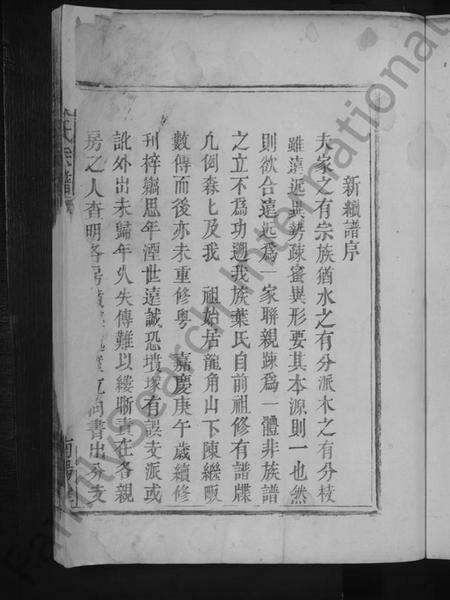 新續譜序
夫家之有宗族猶水之有分派木之有分枝
雖遠近異勢疎蜜異形要其本源則一也然
則欲合遠近為一家聯親疎為一體非族譜
之立不為功遡我族葉氏自前祖修有譜牒
凢例森七及我 祖始居龍角山下陳繼畈
數傳而後亦未重修粤 嘉慶庚午歲續修
刋梓繼思年湮世遠誠恐墳塚有誤支派或
訛外出未歸年乆失傳難以縷晰責在各親
房之人查明各房 书出分支
氏宗譜
南陽
FamilySearch International